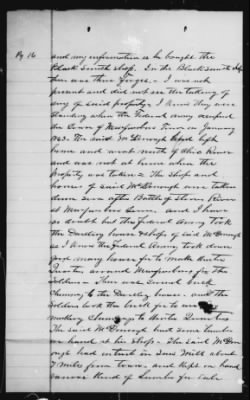 Pg 16
and my information is he bought the
Black Smith shop. In the Black Smith shop
there was three forges. I was not
present and did not see the taking of
any of said property. I know they were
standing when the Federal Army occupied
the Town of Murfreesboro Tenn on January
1863. The said McDonough left
home and went north of Ohio River
and was not at home when the
property was taken. The shop and
houses of said McDonough were taken
down soon after Battle of Stone River
at Murfreesboro Tenn. and I have
no doubt but the Federal Army took
the Dwelling house & shops of said McDonough
as I know the Federal Army took down
good many houses for to make Winter
Quarters around Murfreesboro for the
Soldiers. There was several brick
Chimneys to the Dwelling house and the
Soldiers took the brick for to
making Chimneys to Winter Quarters
The said McDonough had some lumber
on hand at his shops. The said McDon
ough had interest in Saw Mill about
7 miles from town, and kept on hand
various Kind of Lumber for Sale